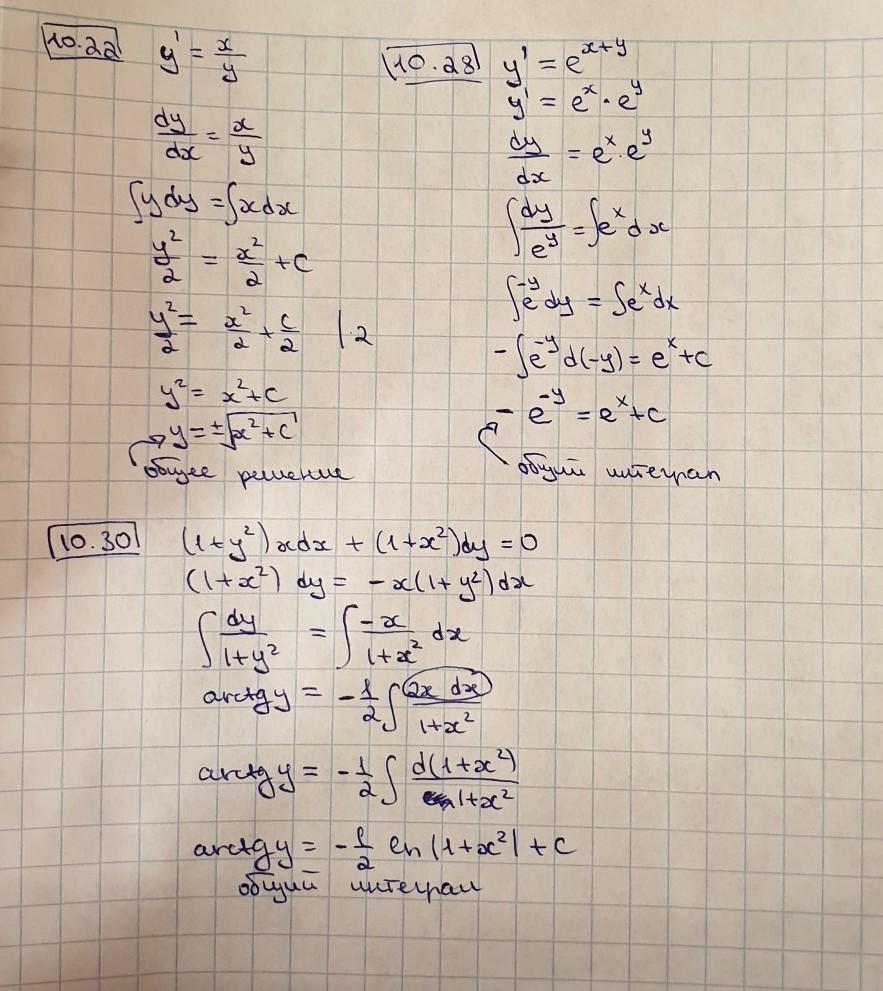 10.22 y' = x/y
dy/dx = x/y
∫y dy = ∫x dx
y²/2 = x²/2 + C
y²/2 = x²/2 + C/2 | ·2
y² = x² + C
y = ±√(x² + C)
общее решение
10.28 y' = e^(x+y)
y' = e^x · e^y
dy/dx = e^x · e^y
∫dy/e^y = ∫e^x dx
∫e^(-y) dy = ∫e^x dx
-∫e^(-y) d(-y) = e^x + C
-e^(-y) = e^x + C
общий интеграл
10.30 (1+y²)xdx + (1+x²)dy = 0
(1+x²) dy = -x(1+y²)dx
∫dy/(1+y²) = ∫(-x)/(1+x²) dx
arctg y = -1/2 ∫(2x dx)/(1+x²)
arctg y = -1/2 ∫d(1+x²)/(1+x²)
arctg y = -1/2 ln|1+x²| + C
общий интеграл